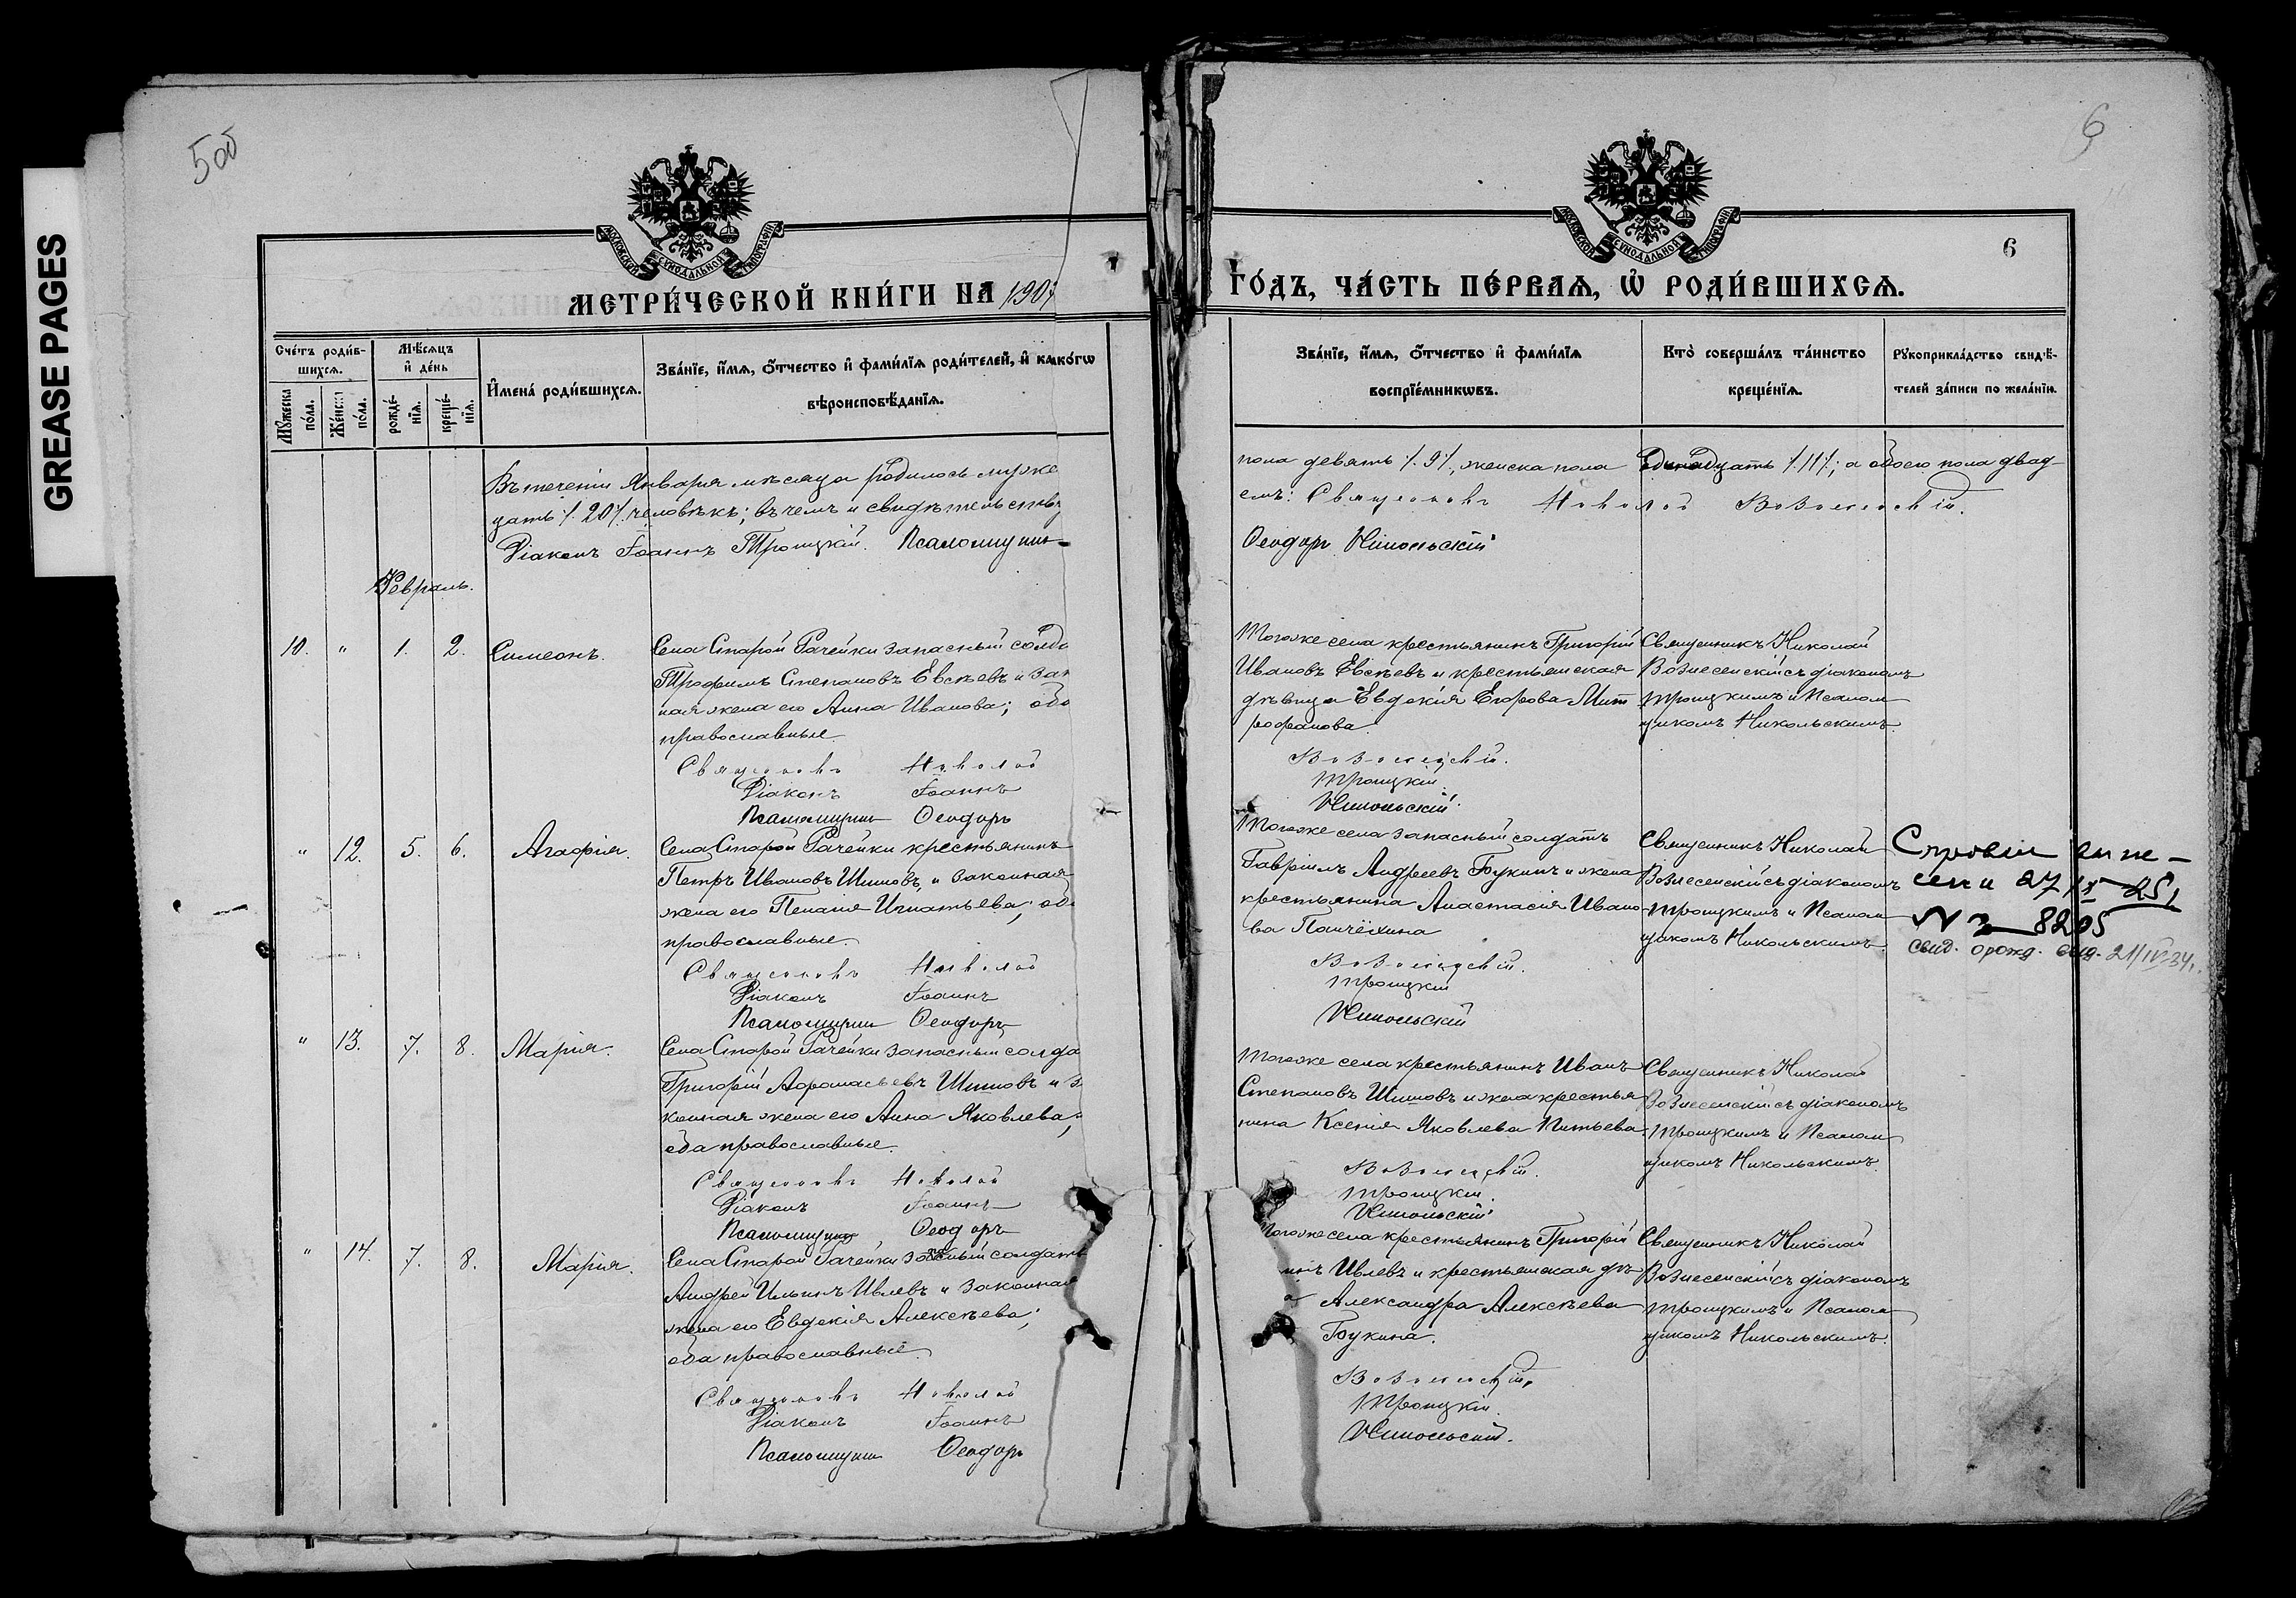 GREASE PAGES
500
6
6
МОСКОВСКОЙ СѴНОДАЛЬНОЙ ТИПОГРАФІИ
МОСКОВСКОЙ СѴНОДАЛЬНОЙ ТИПОГРАФІИ
МЕТРИ́ЧЕСКОЙ КНИ́ГИ НА 1907
ГО́ДЪ, ЧА́СТЬ ПЕ́РВАѦ, Ѽ РОДИ́ВШИХСѦ.
Сче́тъ роди́в-
шихсѧ.
Мꙋжеска по́ла.
Же́нска по́ла.
Мѣ́сѧцъ
и҆ де́нь
рожде́нїѧ.
креще́нїѧ.
И҆мена̀ роди́вшихсѧ.
Зва́нїе, и҆́мѧ, ѻ҆́тчество и҆ фами́лїѧ роди́телей, и҆ како́гѡ
вѣроисповѣ́данїѧ.
Зва́нїе, и҆́мѧ, ѻ҆́тчество и҆ фами́лїѧ
воспрїе́мникѡвъ.
Кто̀ соверша́лъ та́инство
креще́нїѧ.
Рꙋкоприкла́дство свидѣ́-
телей за́писи по жела́нїю.
Въ теченіи Января мѣсяца родилось муже
цать /.20/. человѣкъ; въ чемъ и свидѣтельству
Діаконъ Іоаннъ Троицкій. Псаломщикъ
пола девять /.9/., женска пола одинадцать /.11/.; а обоего пола двад-
емъ: Священникъ Николай Вознесенскій.
Ѳеодоръ Никольскій
Февраль.
10. " 1. 2. Симеонъ.
Села Старой Рачейки запасный солда
Трофимъ Степановъ Евсѣевъ и зак
ная жена его Анна Иванова; оба
православные.
Священникъ Николай
Діаконъ Іоаннъ
Псаломщикъ Ѳеодоръ
Тогоже села крестьянинъ Григорій
Ивановъ Евсѣевъ и крестьянская
дѣвица Евдокія Егорова Мит
рофанова.
Вознесенскій.
Троицкій.
Никольскій.
Священникъ Николай
Вознесенскій съ діакономъ
Троицкимъ и Псалом
щикомъ Никольскимъ.
" 12. 5. 6. Агафія.
Села Старой Рачейки крестьянинъ
Петръ Ивановъ Шишовъ, и законная
жена его Пелагія Игнатьева; оба
православные.
Священникъ Николай
Діаконъ Іоаннъ
Псаломщикъ Ѳеодоръ
Тогоже села запасный солдатъ
Гавріилъ Андреевъ Букинъ и жена
крестьянина Анастасія Ивано-
ва Панчёхина
Вознесенскій.
Троицкій
Никольскій
Священникъ Николай
Вознесенскій съ діакономъ
Троицкимъ и Псалом
щикомъ Никольскимъ.
27/ 25
№ 8205
свид. о рожд. выд. 21/IV 34.
" 13. 7. 8. Марія.
Села Старой Рачейки запасный солда
Григорій Аѳонасьевъ Шишовъ и з
конная жена его Анна Яковлева;
оба православные.
Священникъ Николай
Діаконъ Іоаннъ
Псаломщикъ Ѳеодоръ
Тогоже села крестьянинъ Иванъ
Степановъ Шишовъ и жена крестья
нина Ксенія Яковлева Питьева.
Вознесенскій.
Троицкій.
Никольскій
Священникъ Николай
Вознесенскій съ діакономъ
Троицкимъ и Псалом
щикомъ Никольскимъ.
" 14. 7. 8. Марія.
Села Старой Рачейки запасный солдатъ
Андрей Ильинъ Ивлевъ и законная
жена его Евдокія Алексѣева;
оба православные.
Священникъ Николай
Діаконъ Іоаннъ
Псаломщикъ Ѳеодоръ
Тогоже села крестьянинъ Григорій
инъ Ивлевъ и крестьянская дѣ
а Александра Алексѣева
Букина.
Вознесенскій.
Троицкій.
Никольскій.
Священникъ Николай
Вознесенскій съ діакономъ
Троицкимъ и Псалом
щикомъ Никольскимъ.